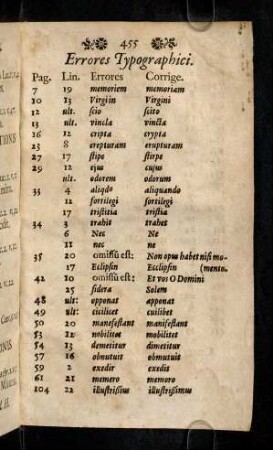 455
Errores Typographici.
Pag. Lin. Errores Corrige.
7 19 memoriem memoriam
10 13 Virgiin Virgini
12 ult. scio scito
13 ult. vincla vincta
16 12 cripta crypta
23 8 erepturam erupturam
27 17 stipe stirpe
29 12 ejus cujus
ult. odorem odorum
33 4 aliqdo aliquando
12 sortilegi sortilegi
17 tristitia tristia
34 3 trahit trahet
6 Nec Ne
11 nec ne
35 20 omissū est: Non opus habet nisi mo-
17 Eclipsin Ecclipsin (mento.
42 10 omissũ est: Et vos O Domini
25 sidera Solem
48 ult: opponat apponat
49 ult: cicilicet cuilibet
50 20 manefestant manifestant
53 12 nobilitet mobilitet
54 13 demetitur dimetitur
57 16 obnutuit obmutuit
59 2 exedir exedit
61 21 memero memoro
104 22 illustrissius illustrissimus